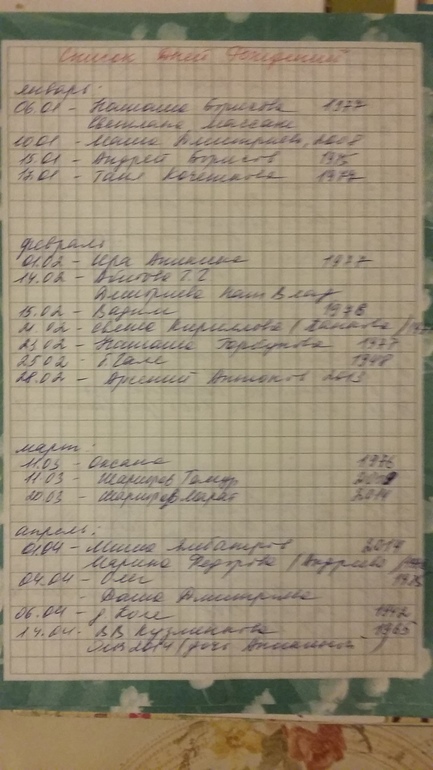 Список Дней Рождений
январь:
06.01 - Наташа Борисова 1977
Светлана
10.01 - Маша Дмитриева, 2008
15.01 - Андрей Борисов 1975
17.01 - Таня Кочешкова 1977
февраль
01.02 - Ира Аникина 1977
14.02 -
Дмитриева Влад
15.02 - Вадим 1978
21.02 - Света Кириллова (
23.02 - Наташа Горбунова 1977
25.02 - Т. Галя 1948
28.02 - Арсений Антонов 2013
март:
11.03 - Оксана 1976
11.03 - Шарипов Тимур
20.03 - Шарипов Марат 2014
апрель:
01.04 - Миша 2014
Марина Федорова (Андреева)
04.04 - Олег 1975
Даша Дмитриева
06.04 - д. Коле 1942
14.04 - ВВ Кузьминкова 1965
2014 (дочь Аникиной)